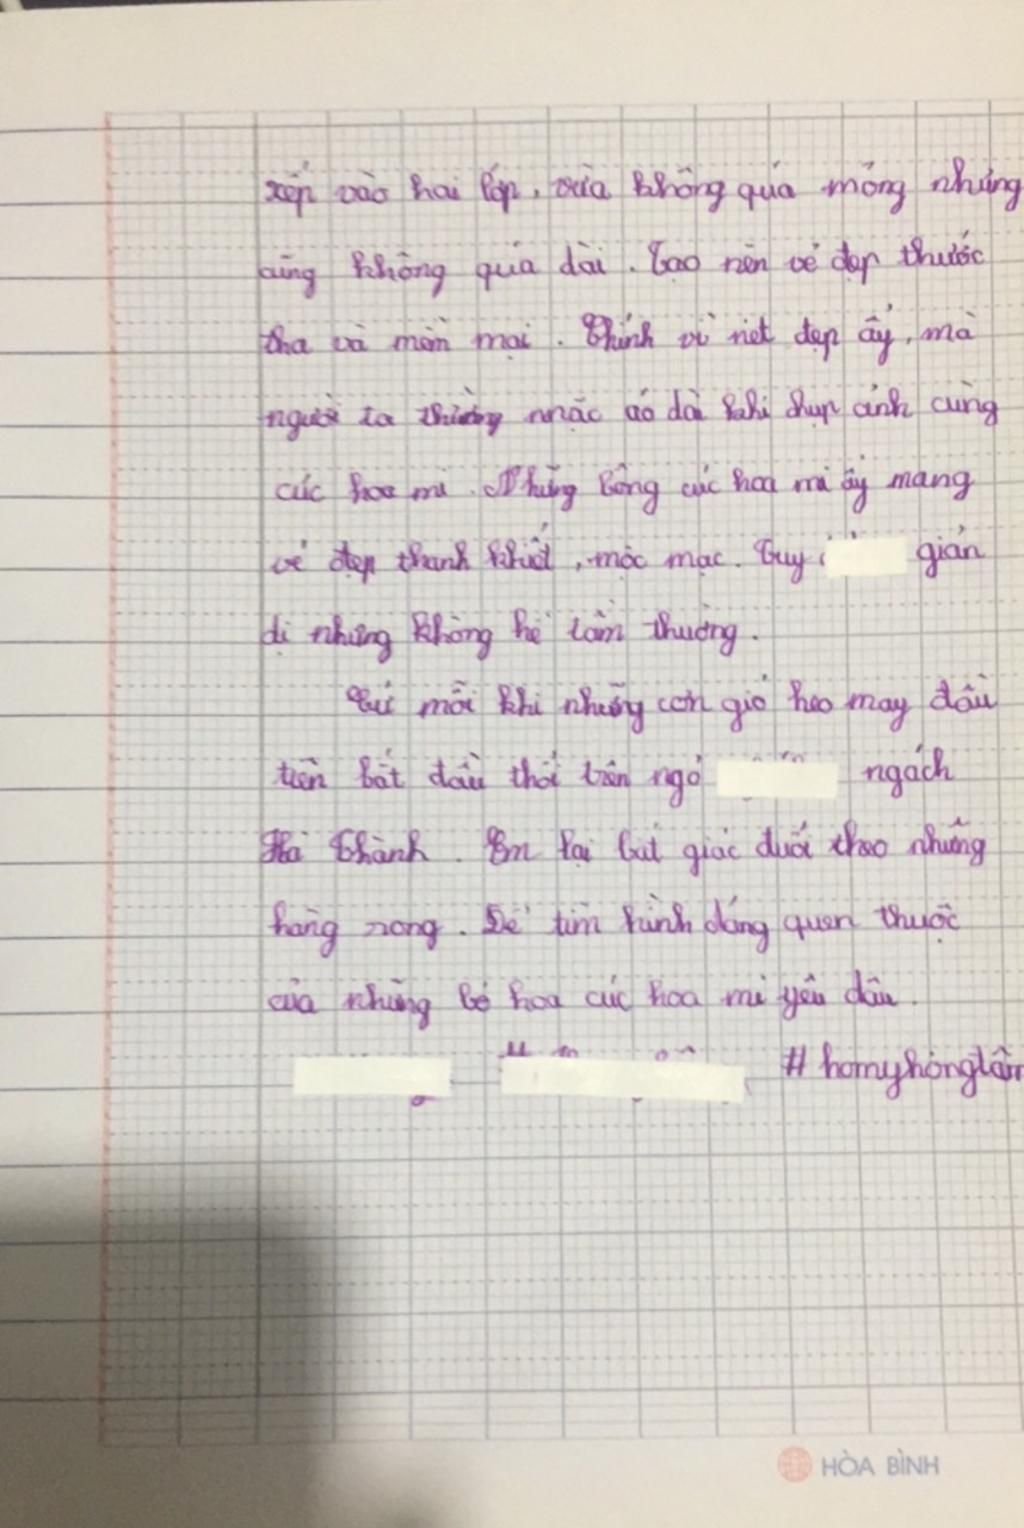 xếp vào hai lớp, vừa không quá mỏng nhưng
cũng không quá dài. Tạo nên vẻ đẹp thướt
tha và mềm mại. Chính vì nét đẹp ấy, mà
người ta thường mặc áo dài khi chụp ảnh cùng
cúc hoa mi. Những bông cúc hoa mi ấy mang
vẻ đẹp thanh khiết, mộc mạc. Tuy giản
dị nhưng không hề tầm thường.
Cứ mỗi khi những cơn gió heo may đầu
tiên bắt đầu thổi trên ngõ ngách
Hà Thành. Em lại bất giác đuổi theo những
hàng rong. Để tìm hình dáng quen thuộc
của những bó hoa cúc hoa mi yêu dấu.
#homyhongtâm
HÒA BÌNH